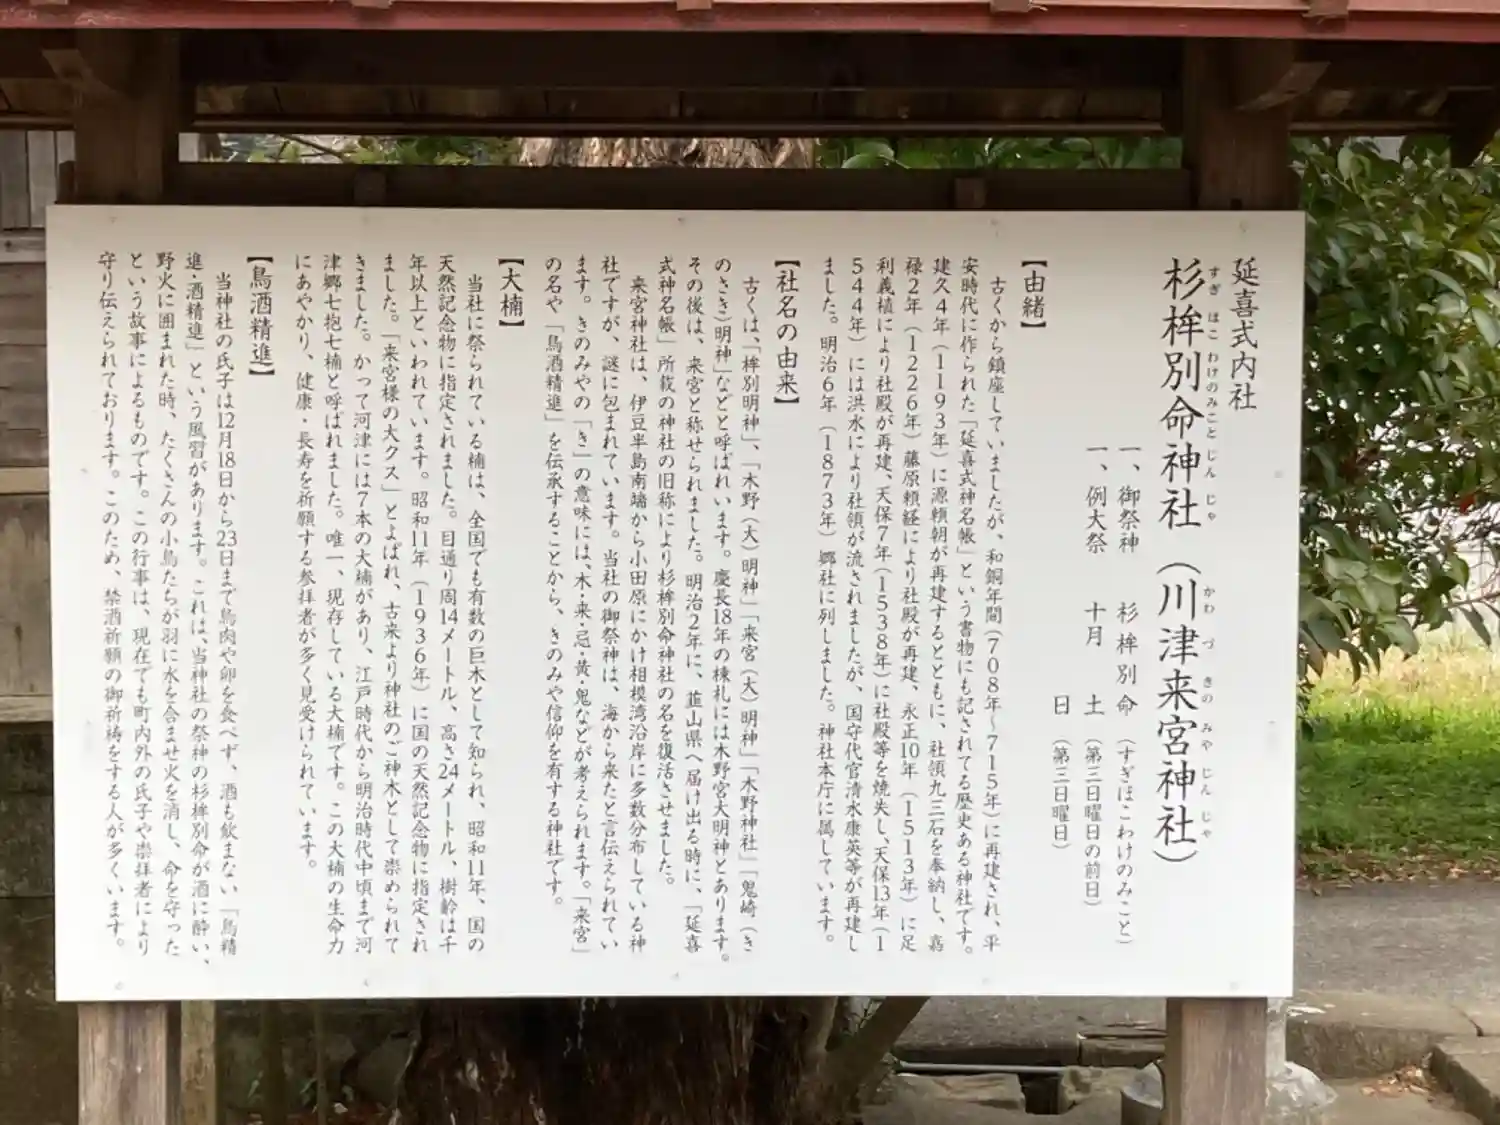 延喜式内社
杉桙別命神社(川津来宮神社)
すぎ ほこ わけのみこと じん じゃ かわ づ きの みや じん じゃ
一、御祭神 杉桙別命(すぎほこわけのみこと)
一、例大祭 十月 土(第三日曜日の前日)
日(第三日曜日)
【由緒】
古くから鎮座していましたが、和銅年間(708年~715年)に再建され、平
安時代に作られた「延喜式神名帳」という書物にも記されてる歴史ある神社です。
建久4年(1193年)に源頼朝が再建するとともに、社領九三石を奉納し、嘉
禄2年(1226年)藤原頼経により社殿が再建、永正10年(1513年)に足
利義植により社殿が再建、天保7年(1538年)に社殿等を焼失し、天保13年(1
544年)には洪水により社領が流されましたが、国守代官清水康英等が再建し
ました。明治6年(1873年)郷社に列しました。神社本庁に属しています。
【社名の由来】
古くは、「桙別明神」、「木野(大)明神」「来宮(大)明神」「木野神社」「鬼崎(き
のさき)明神」などと呼ばれいます。慶長18年の棟札には木野宮大明神とあります。
その後は、来宮と称せられました。明治2年に、韮山県へ届け出る時に、「延喜
式神名帳」所載の神社の旧称により杉桙別命神社の名を復活させました。
来宮神社は、伊豆半島南端から小田原にかけ相模湾沿岸に多数分布している神
社ですが、謎に包まれています。当社の御祭神は、海から来たと言伝えられてい
ます。きのみやの「き」の意味には、木・来・忌・黄・鬼などが考えられます。「来宮」
の名や「鳥酒精進」を伝承することから、きのみや信仰を有する神社です。
【大楠】
当社に祭られている楠は、全国でも有数の巨木として知られ、昭和11年、国の
天然記念物に指定されました。目通り周14メートル、高さ24メートル、樹齢は千
年以上といわれています。昭和11年(1936年)に国の天然記念物に指定され
ました。「来宮様の大クス」とよばれ、古来より神社のご神木として崇められて
きました。かって河津には7本の大楠があり、江戸時代から明治時代中頃まで河
津郷七抱七楠と呼ばれました。唯一、現存している大楠です。この大楠の生命力
にあやかり、健康・長寿を祈願する参拝者が多く見受けられています。
【鳥酒精進】
当神社の氏子は12月18日から23日まで鳥肉や卵を食べず、酒も飲まない「鳥精
進・酒精進」という風習があります。これは、当神社の祭神の杉桙別命が酒に酔い、
野火に囲まれた時、たくさんの小鳥たちが羽に水を含ませ火を消し、命を守った
という故事によるものです。この行事は、現在でも町内外の氏子や崇拝者により
守り伝えられております。このため、禁酒祈願の御祈祷をする人が多くいます。